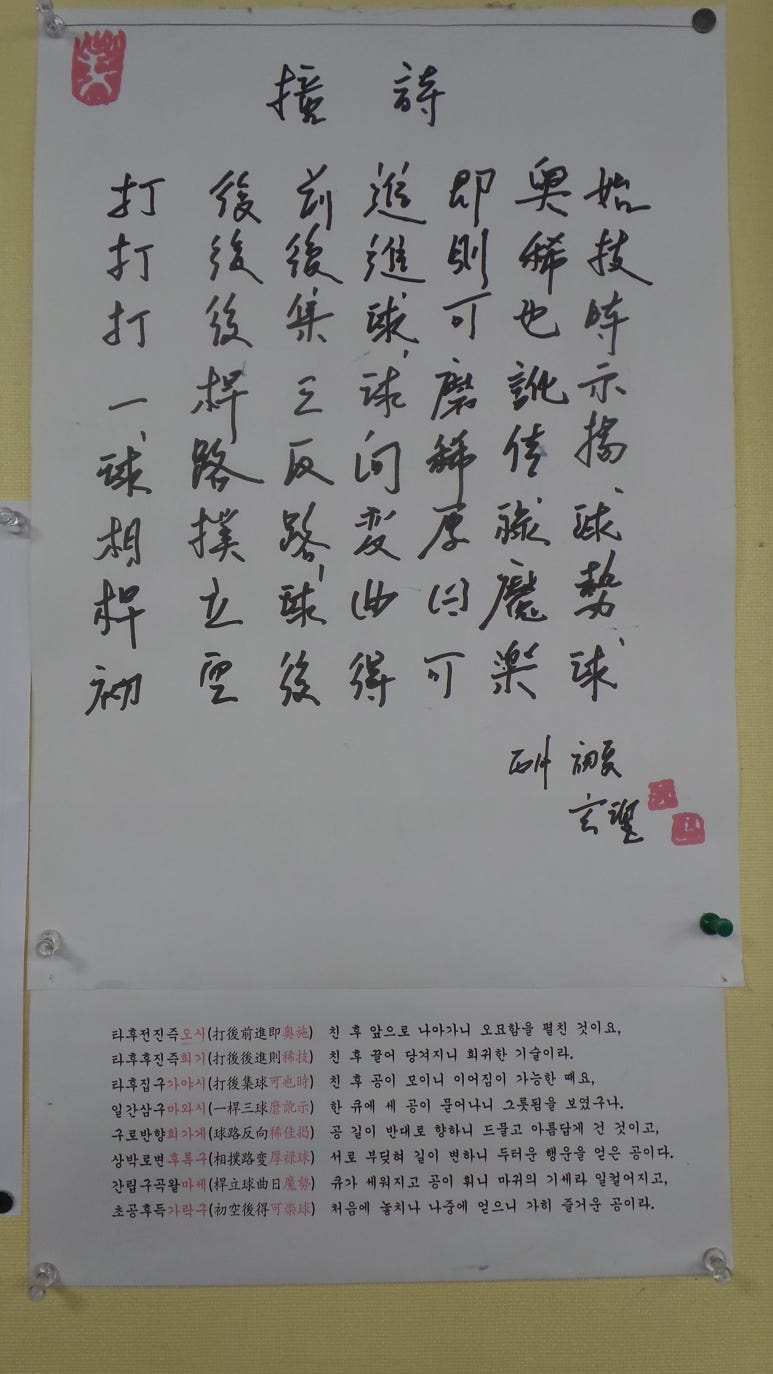 撞詩
打後前進即奧施
打後後進則稀技
打後集球可也時
一桿三球磨訛示
球路反向稀佳揭
相撲路変厚祿球
桿立球曲曰魔勢
初空後得可楽球
初夏
타후전진즉오시(打後前進即奥施) 친 후 앞으로 나아가니 오묘함을 펼친 것이요,
타후후진즉희기(打後後進則稀技) 친 후 끌어 당겨지니 희귀한 기술이라.
타후집구가야시(打後集球可也時) 친 후 공이 모이니 이어짐이 가능한 때요,
일간삼구마와시(一桿三球磨訛示) 한 큐에 세 공이 문어나니 그릇됨을 보였구나.
구로반향희가게(球路反向稀佳揭) 공 길이 반대로 향하니 드물고 아름답게 건 것이고,
상박로변후록구(相撲路変厚禄球) 서로 부딪혀 길이 변하니 두터운 행운을 얻은 공이다.
간립구곡왈마세(桿立球曲日魔勢) 큐가 세워지고 공이 휘니 마귀의 기세라 일컬어지고,
초공후득가락구(初空後得可楽球) 처음에 놓치나 나중에 얻으니 가히 즐거운 공이라.